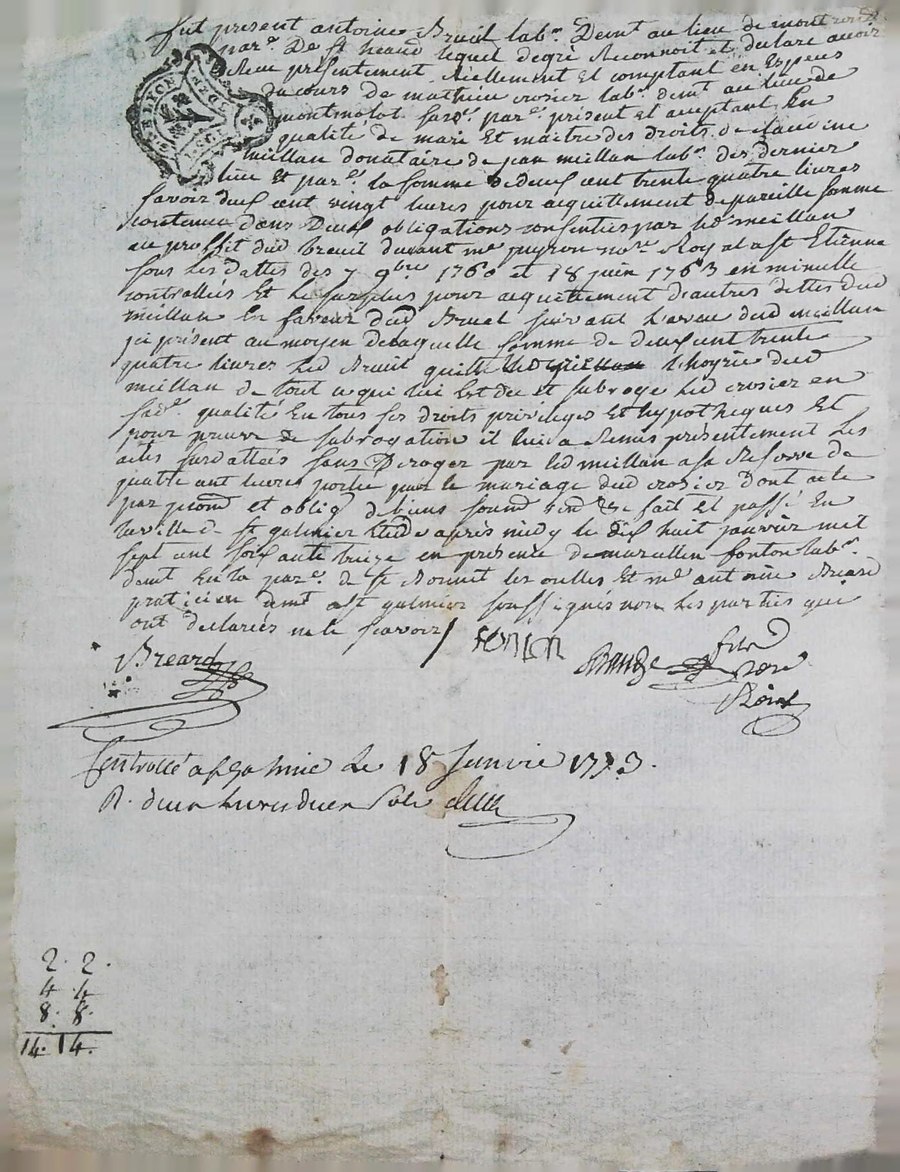 fut present antoine Breuil lab.r Demt au lieu de
par.e De st heand lequel degré Reconnoit et declare avoir
Receu présentement Réellement et comptant en Especes
du cours de mathieu crosier lab.r demt au lieu de
montmolot par.e present et aceptant En
qualité de mari Et maitre des droits de
meillan donataire de jean meillan lab.r des dernier
lieu Et par.e la somme de deux cent trente quatre livres
savoir deux cent vingt livres pour acquittement de pareille somme
contenue dans Deux obligations consenties par led meillan
au proffit dud breuil devant me peyron no.re Royal a st Etienne
sous les dattes des 7 9bre 1760 et 18 juin 1763 en minutte
controllées Et le surplus pour acquittement d'autres dettes dud
meillan En faveur dud Breuil suivant l'aveu dud meillan
ici présent au moyen de laquelle somme de deux cent trente
quatre livres led Breuil quitte l'hoyrie dud
meillan de tout ce qui lui Est du et subroge led crosier en
sad.e qualité En tous ses droits privileges Et hypotheques Et
pour preuve de subrogation il lui a Remis présentement les
actes susdattés sans Deroger par led meillan a sa Reserve de
quatre cent livres portée par le mariage dud crosier Dont acte
par prom et oblig de biens soum fait et passé En
la ville de st galmier Etude après midy le dix huit janvier mil
sept cent soixante treize en présence de marcellin fonton lab.r
demt En la par.e de st Bonnet les oulles Et me antoine Breard
praticien demt a st galmier soussignés non les parties qui
ont declarées ne le sçavoir /
Breard fonton
Controllé a st galmier Le 18 Janvier 1773.
R. deux livres deux sols
2. 2.
4 4
8. 8.
14. 14.